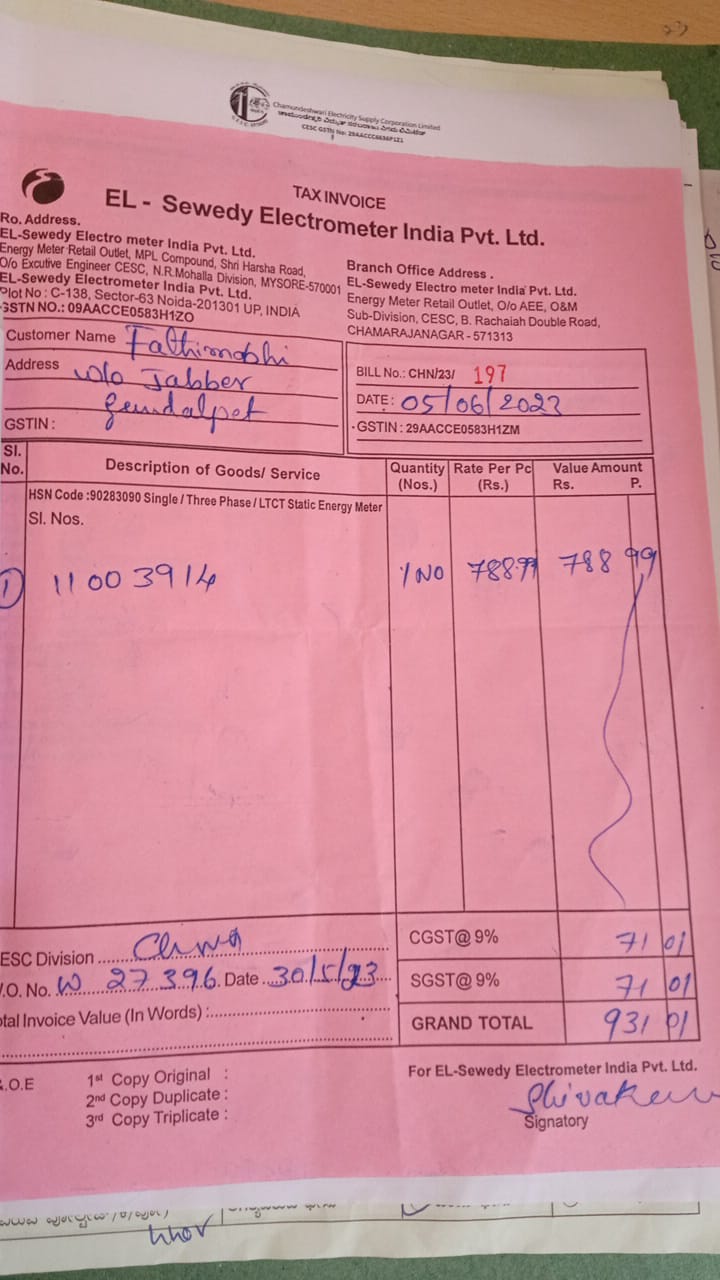 Chamundeshwari Electricity Supply Corporation Limited
ಚಾಮುಂಡೇಶ್ವರಿ ವಿದ್ಯುತ್ ಸರಬರಾಜು ನಿಗಮ ನಿಯಮಿತ
TAX INVOICE
EL - Sewedy Electrometer India Pvt. Ltd.
Ro. Address.
EL-Sewedy Electro meter India Pvt. Ltd.
Energy Meter Retail Outlet, MPL Compound, Shri Harsha Road,
O/o Excutive Engineer CESC, N.R.Mohalla Division, MYSORE-570001
EL-Sewedy Electrometer India Pvt. Ltd.
Plot No : C-138, Sector-63 Noida-201301 UP, INDIA
GSTN NO.: 09AACCE0583H1ZO
Branch Office Address .
EL-Sewedy Electro meter India Pvt. Ltd.
Energy Meter Retail Outlet, O/o AEE, O&M
Sub-Division, CESC, B. Rachaiah Double Road,
CHAMARAJANAGAR - 571313
Customer Name Fathimabhi
Address w/o Jabber
Gundalpet
GSTIN :
BILL No.: CHN/23/ 197
DATE : 05/06/2023
GSTIN : 29AACCE0583H1ZM
Sl. No. Description of Goods/ Service Quantity (Nos.) Rate Per Pc (Rs.) Value Amount Rs. P.
HSN Code :90283090 Single / Three Phase / LTCT Static Energy Meter
Sl. Nos.
1 11003914 1 NO 788.99 788 99
ESC Division
.O. No. W 27396 Date 30/5/23
tal Invoice Value (In Words) :
CGST@ 9% 71 01
SGST@ 9% 71 01
GRAND TOTAL 931 01
.O.E
1st Copy Original :
2nd Copy Duplicate :
3rd Copy Triplicate :
For EL-Sewedy Electrometer India Pvt. Ltd.
Signatory